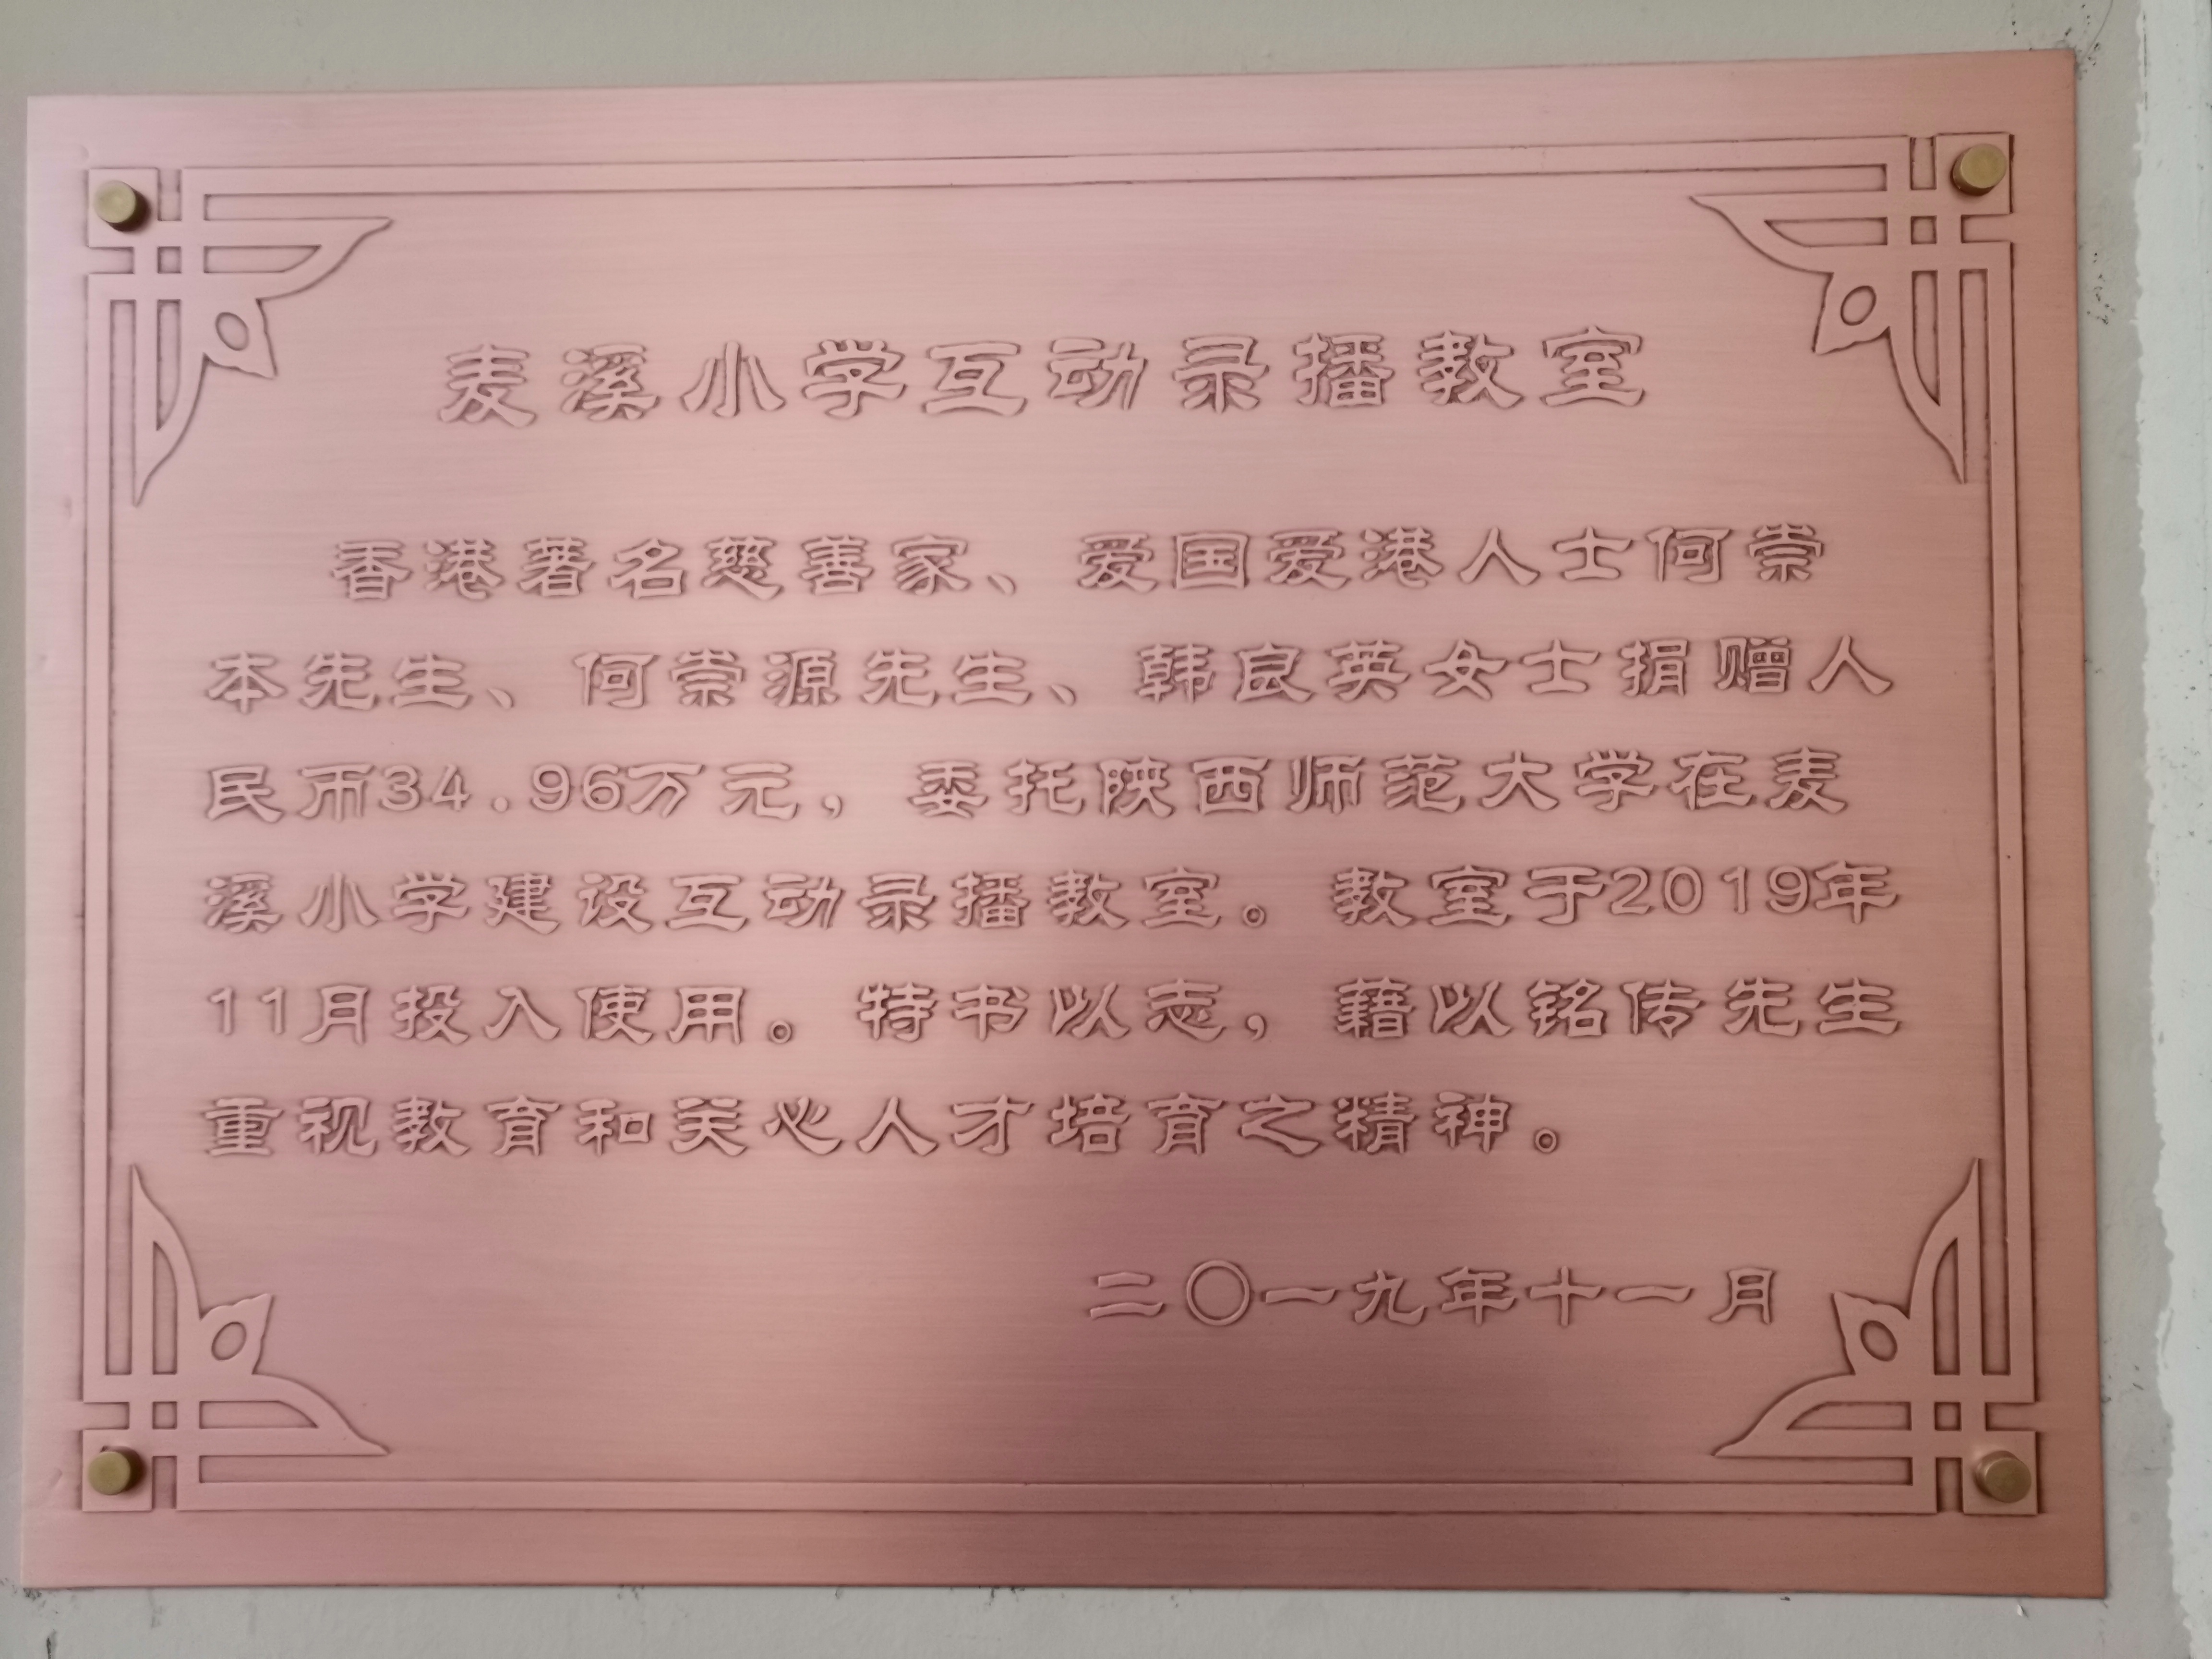 麦溪小学互动录播教室
香港著名慈善家、爱国爱港人士何崇
本先生、何崇源先生、韩良英女士捐赠人
民币34.96万元，委托陕西师范大学在麦
溪小学建设互动录播教室。教室于2019年
11月投入使用。特书以志，藉以铭传先生
重视教育和关心人才培育之精神。
二〇一九年十一月